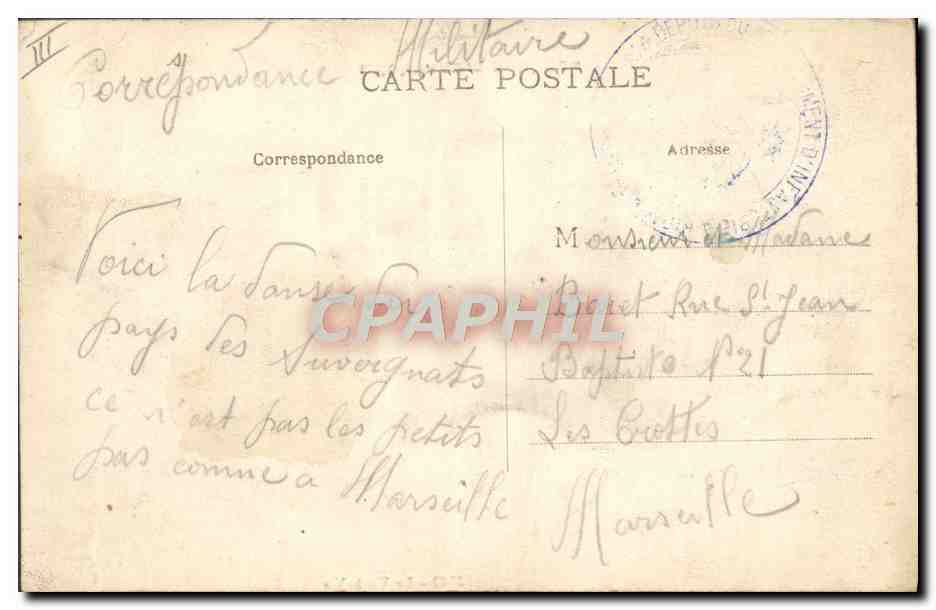 III
Correspondance Militaire
CARTE POSTALE
Correspondance
Adresse
MENT D'INFA
Voici la danse du
pays des Auvergnats
ce n'est pas les petits
pas comme a Marseille
Monsieur et Madame
Rue St Jean
Baptiste N° 21
Les Crottes
Marseille
CPAPHIL